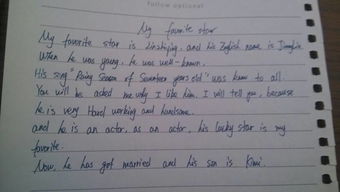 follow optional
My favorite star
My favorite star is Linzhiying, and his English name is Jimmy.
When he was young, he was well-known.
His song "Rainy Season of Seventeen years old" was know to all.
You will be asked me why I like him. I will tell you, because
he is very Hard working and handsome.
and he is an actor, as an actor, his lucky star is my
favorite.
Now, he has got married and his son is Kimi.